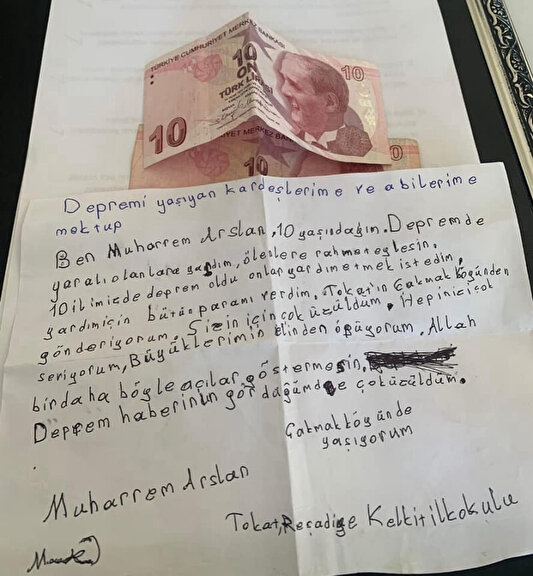 TÜRKİYE CUMHURİYET MERKEZ BANKASI
10
ON
TÜRK LİRASI
10
10
YET MERKEZ BANK
10
0
Depremi yaşıyan kardeşlerime ve abilerime
mektup
Ben Muharrem Arslan, 10 yaşındağım. Depremde
yaralı olanlara yardım, ölenlere rahmet eylesin.
10 ilimizde deprem oldu onlar yardım etmek istedim,
yardım için bütün paramı verdim. Tokat'ın Çakmak Köğünden
gönderiyorum. Sizin için çok üzüldüm. Hepinici çok
seriyorum, Büyüklerimin elinden öpüyorum. Allah
birdaha böyle açılar göstermesin.
Deprem haberinin gördağümde çoküzüldüm.
Çakmak köyünde
yaşıyorum
Muharrem Arslan
Tokat, Reşadiye Kelkit ilkokulu